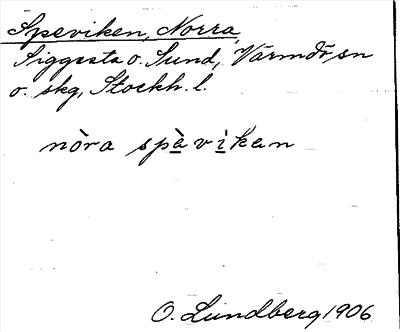 Speviken, Norra,
Siggesta o. Sund, Värmdö sn
o. skg, Stockh. l.
nòra spà̠vi̠̇kan
O. Lundberg 1906